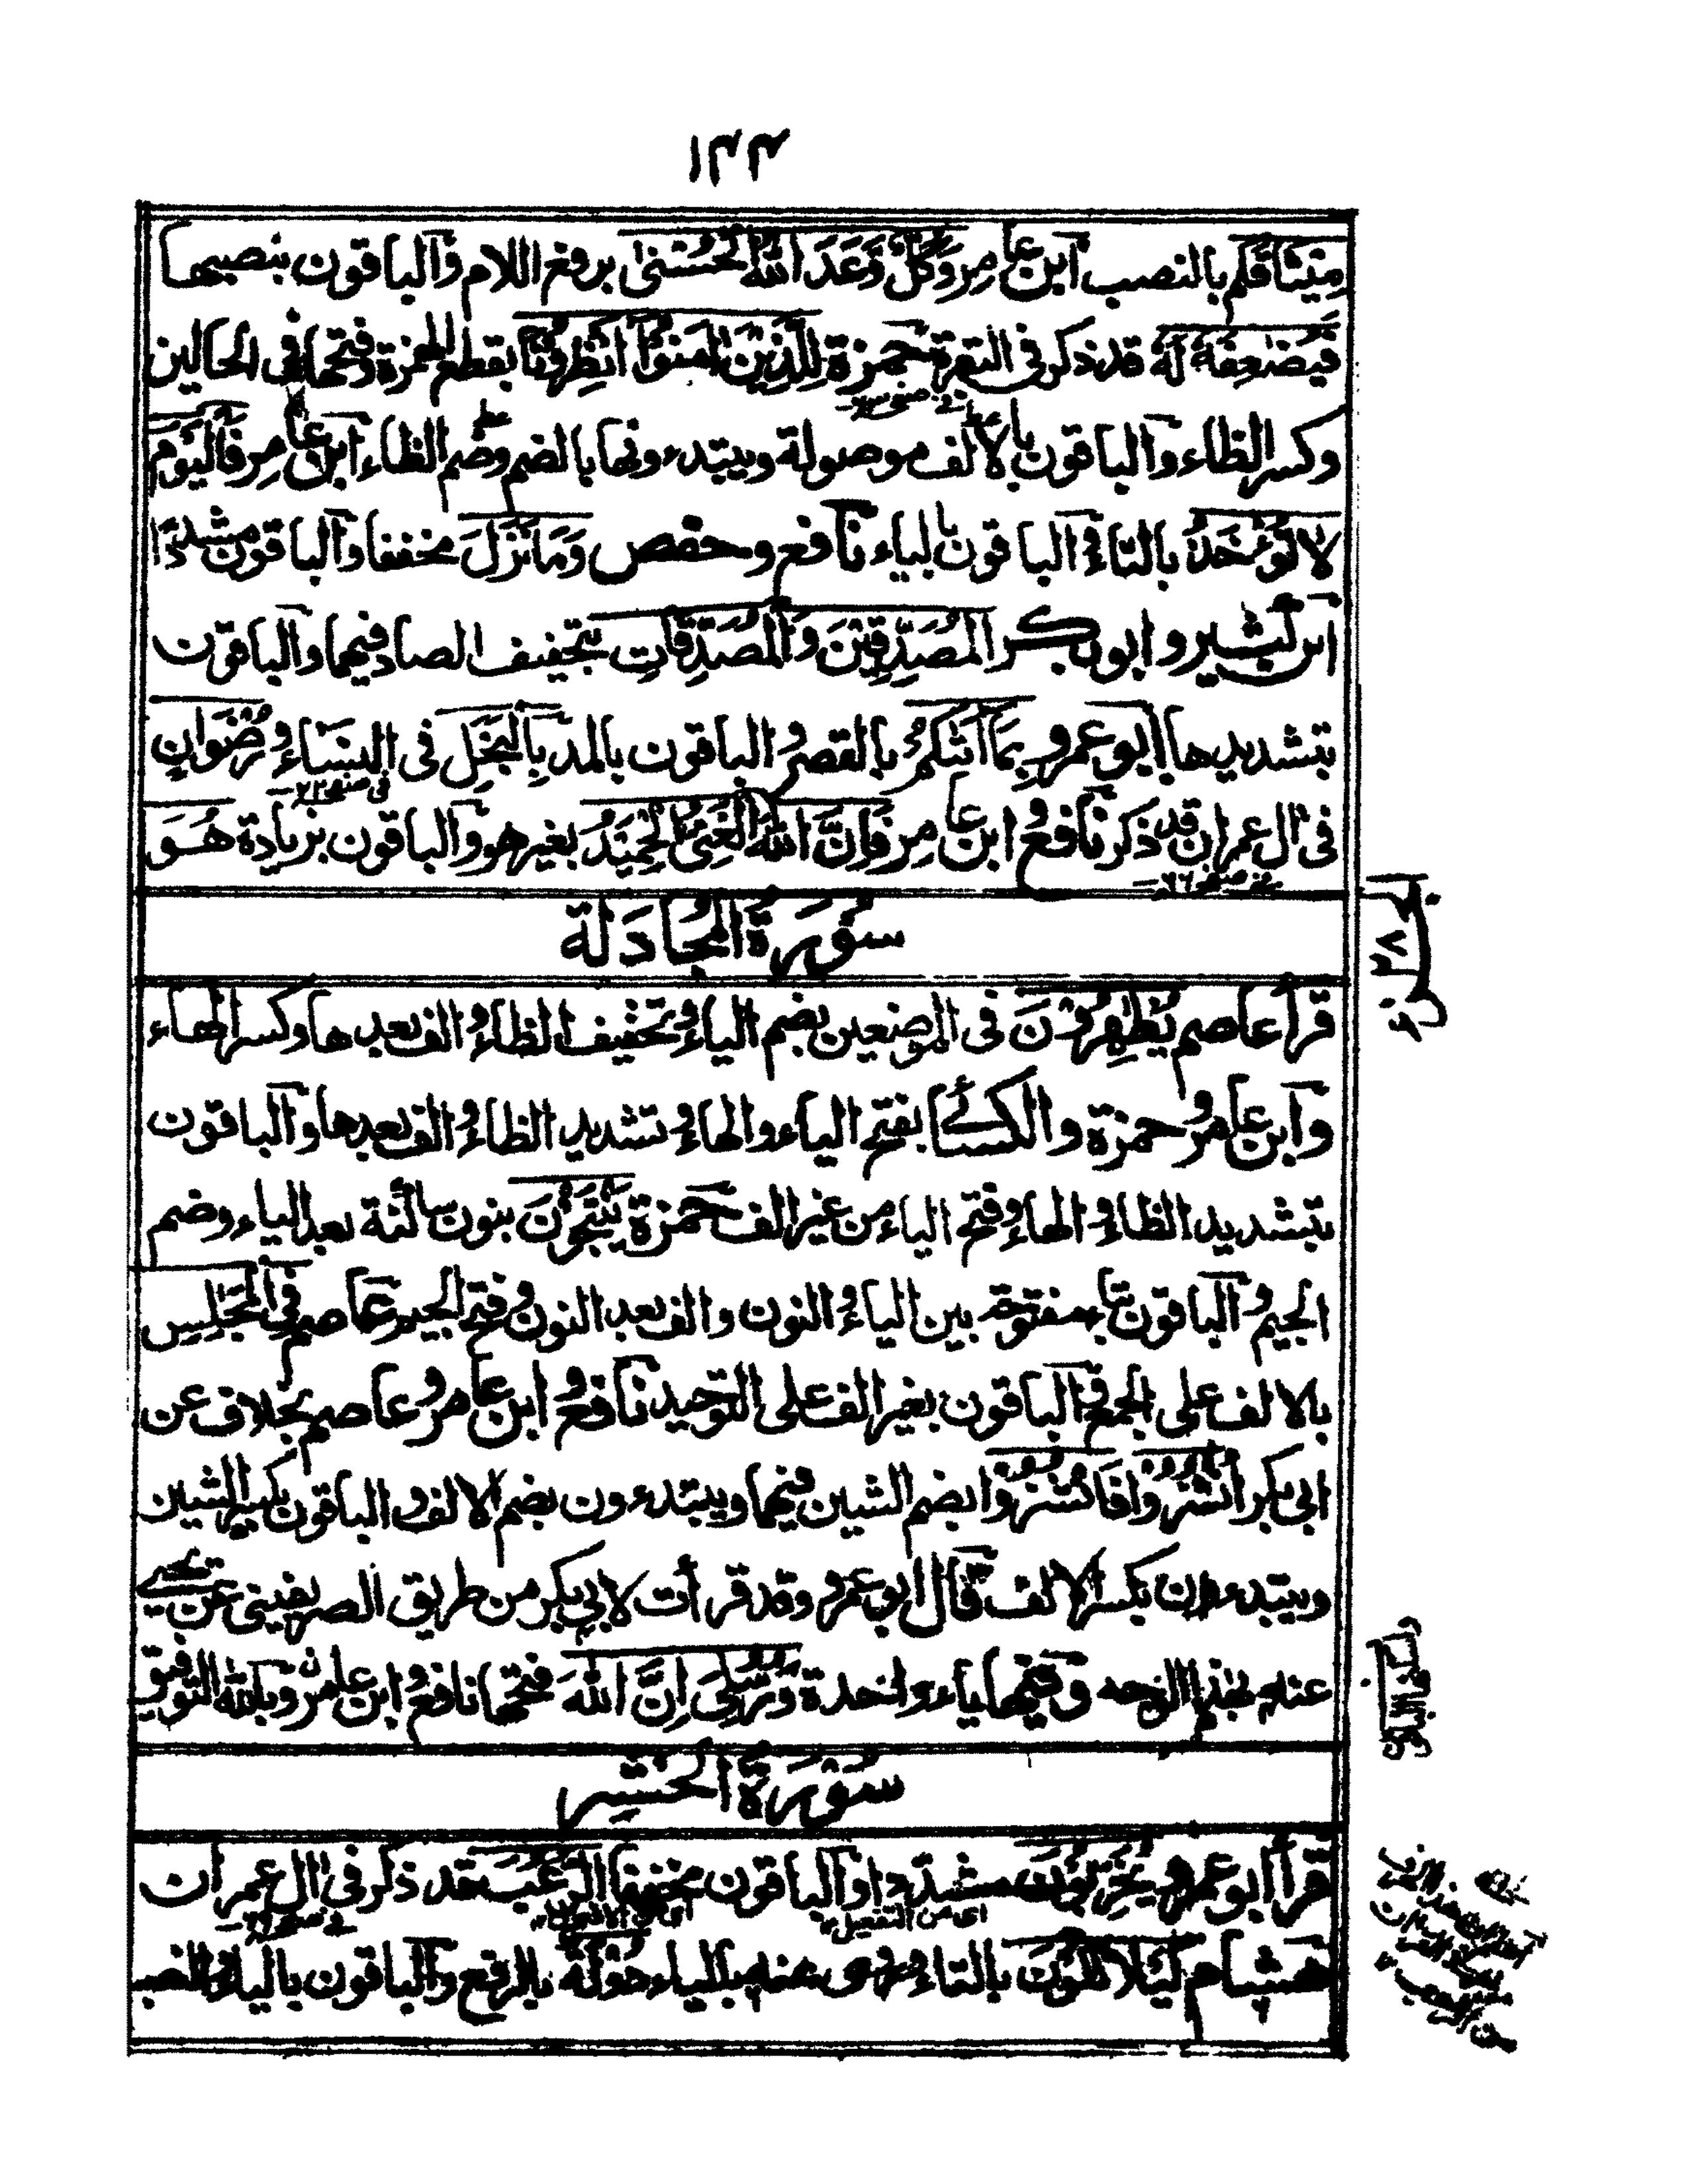 ١٣٣
مِيْثَاقَكُم بالنصب ابن عامر وَكُلٌّ وَّعَدَ اللّٰهُ الْحُسْنٰى برفع اللام والباقون بنصبها
فَيُضٰعِفَهٗ لَهٗ قد ذكر فى البقرة حمزة لِلَّذِيْنَ اٰمَنُوا انْظُرُوْنَا بقطع الهمزة وفتحها فى الحالين
وكسر الظاء والباقون بالالف موصولة ويبتدءونها بالضم وضم الظاء ابن عامر فَالْيَوْمَ
لَا تُؤْخَذُ بالتاء والباقون بالياء نافع وحفص وَمَا نَزَلَ مخففا والباقون مشددا
ابن كثير وابوبكر الْمُصَدِّقِيْنَ وَالْمُصَدِّقَاتِ بتخفيف الصاد فيهما والباقون
بتشديدها ابو عمرو بِمَا اَتٰكُمْ بالقصر والباقون بالمد بِالْبُخْلِ فى النساء وَرِضْوَانٍ
فى صفحه ٧٢
فى اٰل عمران قد ذكر نافع وابن عامر فَاِنَّ اللّٰهَ الْغَنِيُّ الْحَمِيْدُ بغير هو والباقون بزيادة هُوَ
فى صفحه ٦٦
سُوْرَةُ الْمُجَادَلَة
قرأ عاصم يُظٰهِرُوْنَ فى الموضعين بضم الياء وتخفيف الظاء والف بعدها وكسر الهاء
وابن عامر وحمزة والكسائى بفتح الياء والهاء وتشديد الظاء والف بعدها والباقون
بتشديد الظاء والهاء وفتح الياء من غير الف حمزة يَنْتَجُوْنَ بنون ساكنة بعد الياء وضم
الجيم والباقون بتاء مفتوحة بين الياء والنون والف بعد النون وفتح الجيم عاصم فِى الْمَجٰلِسِ
بالالف على الجمع والباقون بغير الف على التوحيد نافع وابن عامر وعاصم بخلاف عن
ابى بكر انْشُزُوْا فَانْشُزُوْا بضم الشين فيهما ويبتدءون بضم الالف والباقون بكسر الشين
ويبتدءون بكسر الالف قال ابو عمرو وقد قرأت لابى بكر من طريق الصريفينى عن يحيى
عنه بهذا الوجه وفيها ياء واحدة وَرُسُلِىْ اِنَّ اللّٰهَ فتحها نافع وابن عامر وبالله التوفيق
سُوْرَةُ الْحَشْر
قرأ ابو عمرو يُخَرِّبُوْنَ مشددا والباقون مخففا الرُّعْبَ قد ذكر فى اٰل عمران
اى من التفعيل
هشام لِئَلَّا تَكُوْنَ بالتاء وروى عنه بالياء دُوْلَةٌ بالرفع والباقون بالياء والنصب